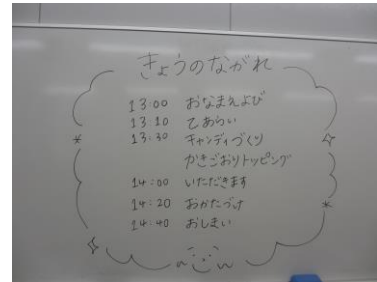 きょうのながれ
13:00 おなまえよび
13:10 てあらい
13:30 キャンディづくり
かきごおりトッピング
14:00 いただきます
14:20 おかたづけ
14:40 おしまい